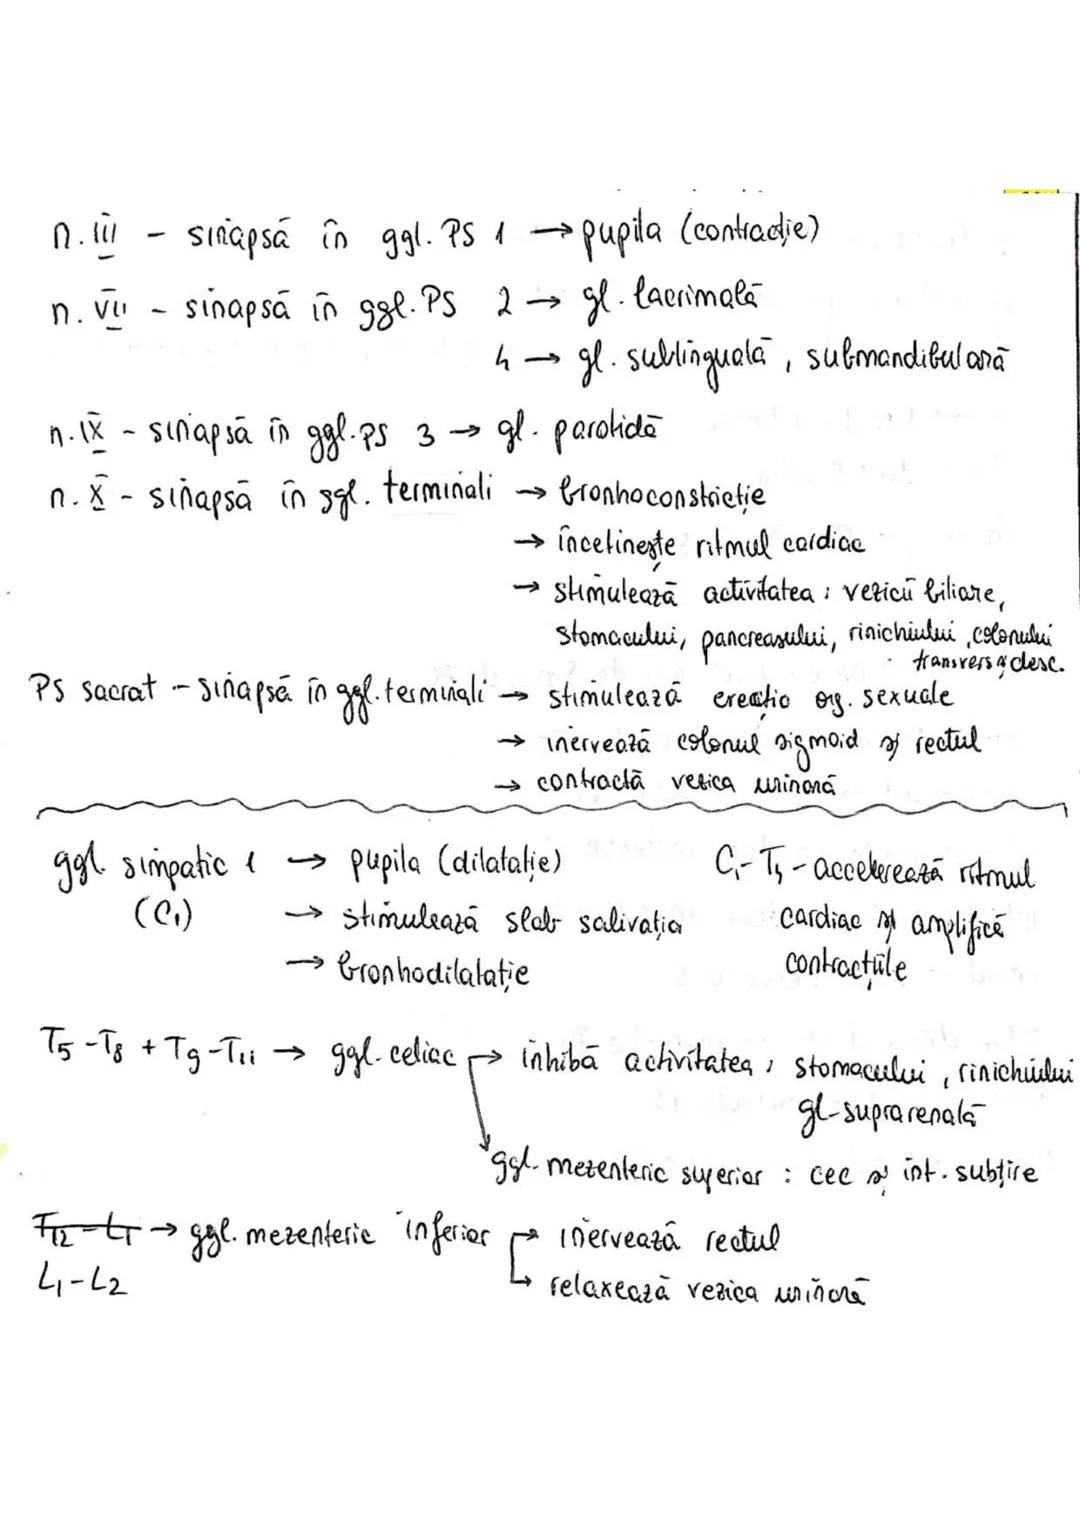 n. III - sinapsă în ggl. PS 1 → pupila (contracție)
n. VII - sinapsă în ggl. PS 2 → gl. lacrimală
4 → gl. sublinguală, submandibulară
n. IX - sinapsă în ggl. PS 3 → gl. parotidă
n. X - sinapsă în ggl. terminali → bronhoconstricție
→ încetinește ritmul cardiac
→ stimulează activitatea: vezicii biliare,
stomacului, pancreasului, rinichiului, colonului
transvers și desc.
PS sacrat - sinapsă în ggl. terminali → stimulează erecția org. sexuale
→ inervează colonul sigmoid și rectul
→ contractă vezica urinară
ggl. simpatic 1 → pupila (dilatație) C1-T5 - accelerează ritmul
(C1) → stimulează slab salivația cardiac și amplifică
→ bronhodilatație contracțiile
T5-T8 + T9-T11 → ggl. celiac → inhibă activitatea: stomacului, rinichiului
gl. suprarenală
ggl. mezenteric superior : cec și int. subțire
T12-L1 → ggl. mezenteric inferior → inervează rectul
L1-L2 → relaxează vezica urinară